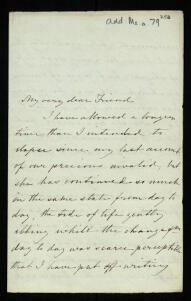 Add Ms a 79
My very dear Friend
I have allowed a longer
time than I intended to
elapse since my last account
of our precious invalid, but
she has continued so much
in the same state from day to
day, the tide of life gently
ebbing whilst the change from
day to day was scarce perceptible
that I have put off writing